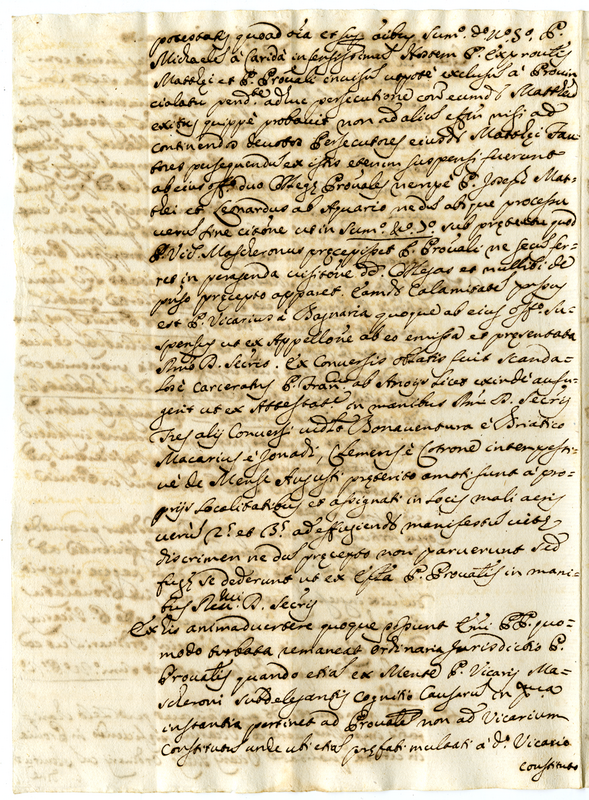 potestatis quoad oĩa et sup oĩbus Sum.º dº Nº 3º. P.
Michaelis à Carida infensissimus Hostem P. Exprovlis
Matthei et P. Provali invisus utpotè exclusus à Provin
cialatu pend.te adhuc persecutione con eumdẽ Mattheũ
exitus quippè probavit non ad alius finem nisi ad
continendos devotos Persecutores eiusdẽ Matthei Fau-
tores persequendus ex istis etenim suspensi fuerunt
ab eius offº duo Collegæ Provales nempe P. Joseph Mat-
thei et Leonardus ab Aquario nedũ absque processu
verus sine citõne ut in Sum.º Nº 3º sub prætextu quod
P. Vic. Moscheronus præcepisset P. Provali ne secus fer-
ret in pergenda visitõne dd. Collegas et nullibi de
præcepto apparet. Eamdẽ Calamitatẽ passus
est P. Vicarius è Bagnaria quoque ab eius offº Su-
spensus ut ex Appellõne ab eo emissa et presentata
Rmõ D. Secrio. Ex Conversis oblatis fuit scanda-
losè Carceratus P. Fran. ab Anoya licet exindè aufu-
gerit ut ex Attestatẽ in manibus Rmi D. Secrij
Tres alij Conversi vidlt Bonaventura è Briatico
Macarius è Jonadi, Clemens è Cotrone intempesti-
vè de Mense Augusti præterito amoti sunt à pro-
prijs Localitatibus et assignati in locis mali aeris
verũ 2.º et 3.º ad effugiendũ manifestũ vitæ
discrimen nedũ præcepto non paruerunt sed
fugæ se dederunt ut ex Eplã P. Provalis in mani-
bus Revmi D. Secrij
Ex his animadvertere quoque possunt Emi PP. quo-
modo turbata remaneat ordinaria Jurisdictio P.
Provalis quando etiã ex Mente P. Vicarij Ma-
scheroni Subdelegantis Cognitio Causarũ in pma
instantia pertinet ad Provalẽ non ad Vicarium
Constitutũ unde uti etiã præfati multati à dº Vicario
constituto